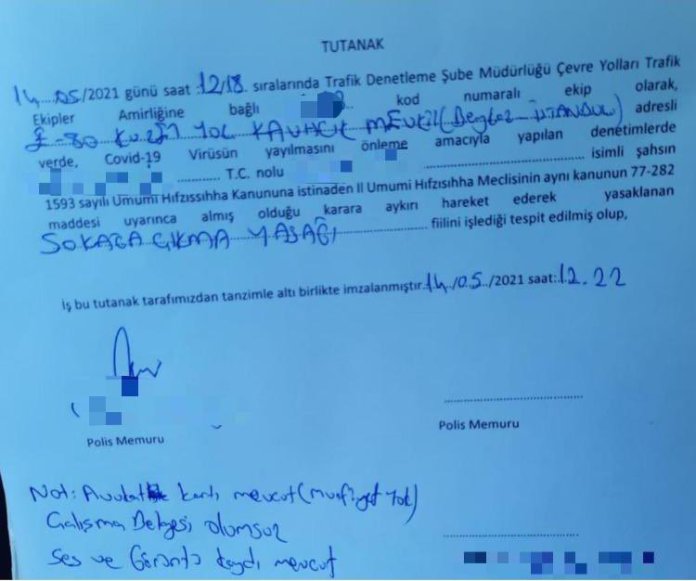 TUTANAK
14.05/2021 günü saat :12/18. sıralarında Trafik Denetleme Şube Müdürlüğü Çevre Yolları Trafik
Ekipler Amirliğine bağlı kod numaralı ekip olarak,
E-80 KUZEY YOL KAVACIK MEVKİİ (Beykoz - İSTANBUL) adresli
yerde, Covid-19 Virüsün yayılmasını önleme amacıyla yapılan denetimlerde
T.C. nolu isimli şahsın
1593 sayılı Umumi Hıfzıssıhha Kanununa istinaden İl Umumi Hıfzısıhha Meclisinin aynı kanunun 77-282
maddesi uyarınca almış olduğu karara aykırı hareket ederek yasaklanan
SOKAĞA ÇIKMA YASAĞI fiilini işlediği tespit edilmiş olup,
İş bu tutanak tarafımızdan tanzimle altı birlikte imzalanmıştır.14./05./2021 saat:12.22
Polis Memuru
Polis Memuru
Not: Avukatlık kartı mevcut (muafiyet yok)
Çalışma Belgesi olumsuz
Ses ve Görüntü kaydı mevcut